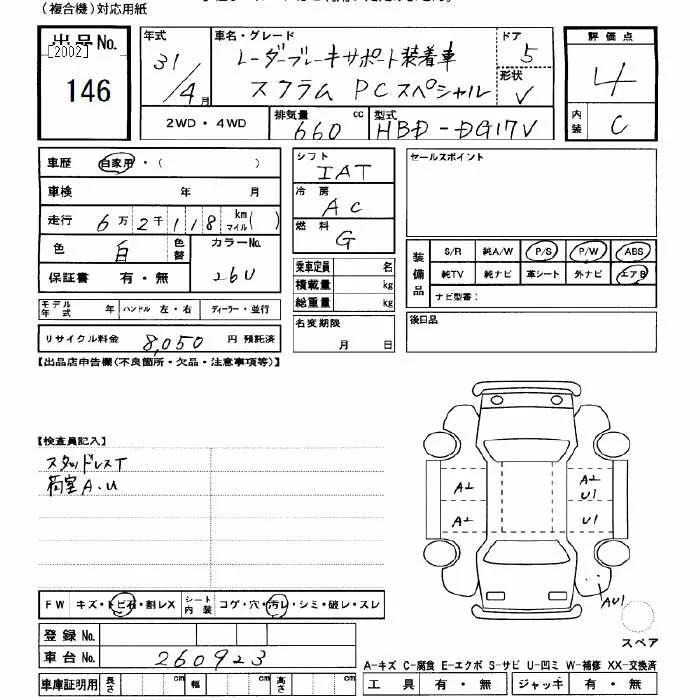 (複合機)対応用紙
出品No.
[2002]
146
年式
31/4月
車名・グレード
レーダーブレーキサポート装着車
スクラム PCスペシャル
ドア
5
形状
V
評価点
4
内装
C
2WD・4WD
排気量
660
cc
型式
HBD-DG17V
車歴
自家用・( )
車検 年 月
走行 6万2千118 km マイル( )
色 白 色替
カラーNo.
26U
保証書 有・無
シフト
IAT
冷房
AC
燃料
G
セールスポイント
装備品
S/R 純A/W P/S P/W ABS
純TV 純ナビ 革シート 外ナビ エアB
ナビ型番:
乗車定員 名
積載量 kg
総重量 kg
モデル年式 年 ハンドル 左・右 ディーラー・並行
リサイクル料金 8,050 円 預託済
名変期限
月 日
後日品
【出品店申告欄(不良箇所・欠品・注意事項等)】
【検査員記入】
スタッドレスT
荷室A.U
A2
A2
A2
U1
U1
AU1
スペア
FW キズ・トビ石・割レX
シート内装 コゲ・穴・汚レ・シミ・破レ・スレ
登録No.
車台No. 260923
車庫証明用 長さ cm 幅 cm 高さ cm
A-キズ C-腐食 E-エクボ S-サビ U-凹ミ W-補修 XX-交換済
工具 有・無 ジャッキ 有・無